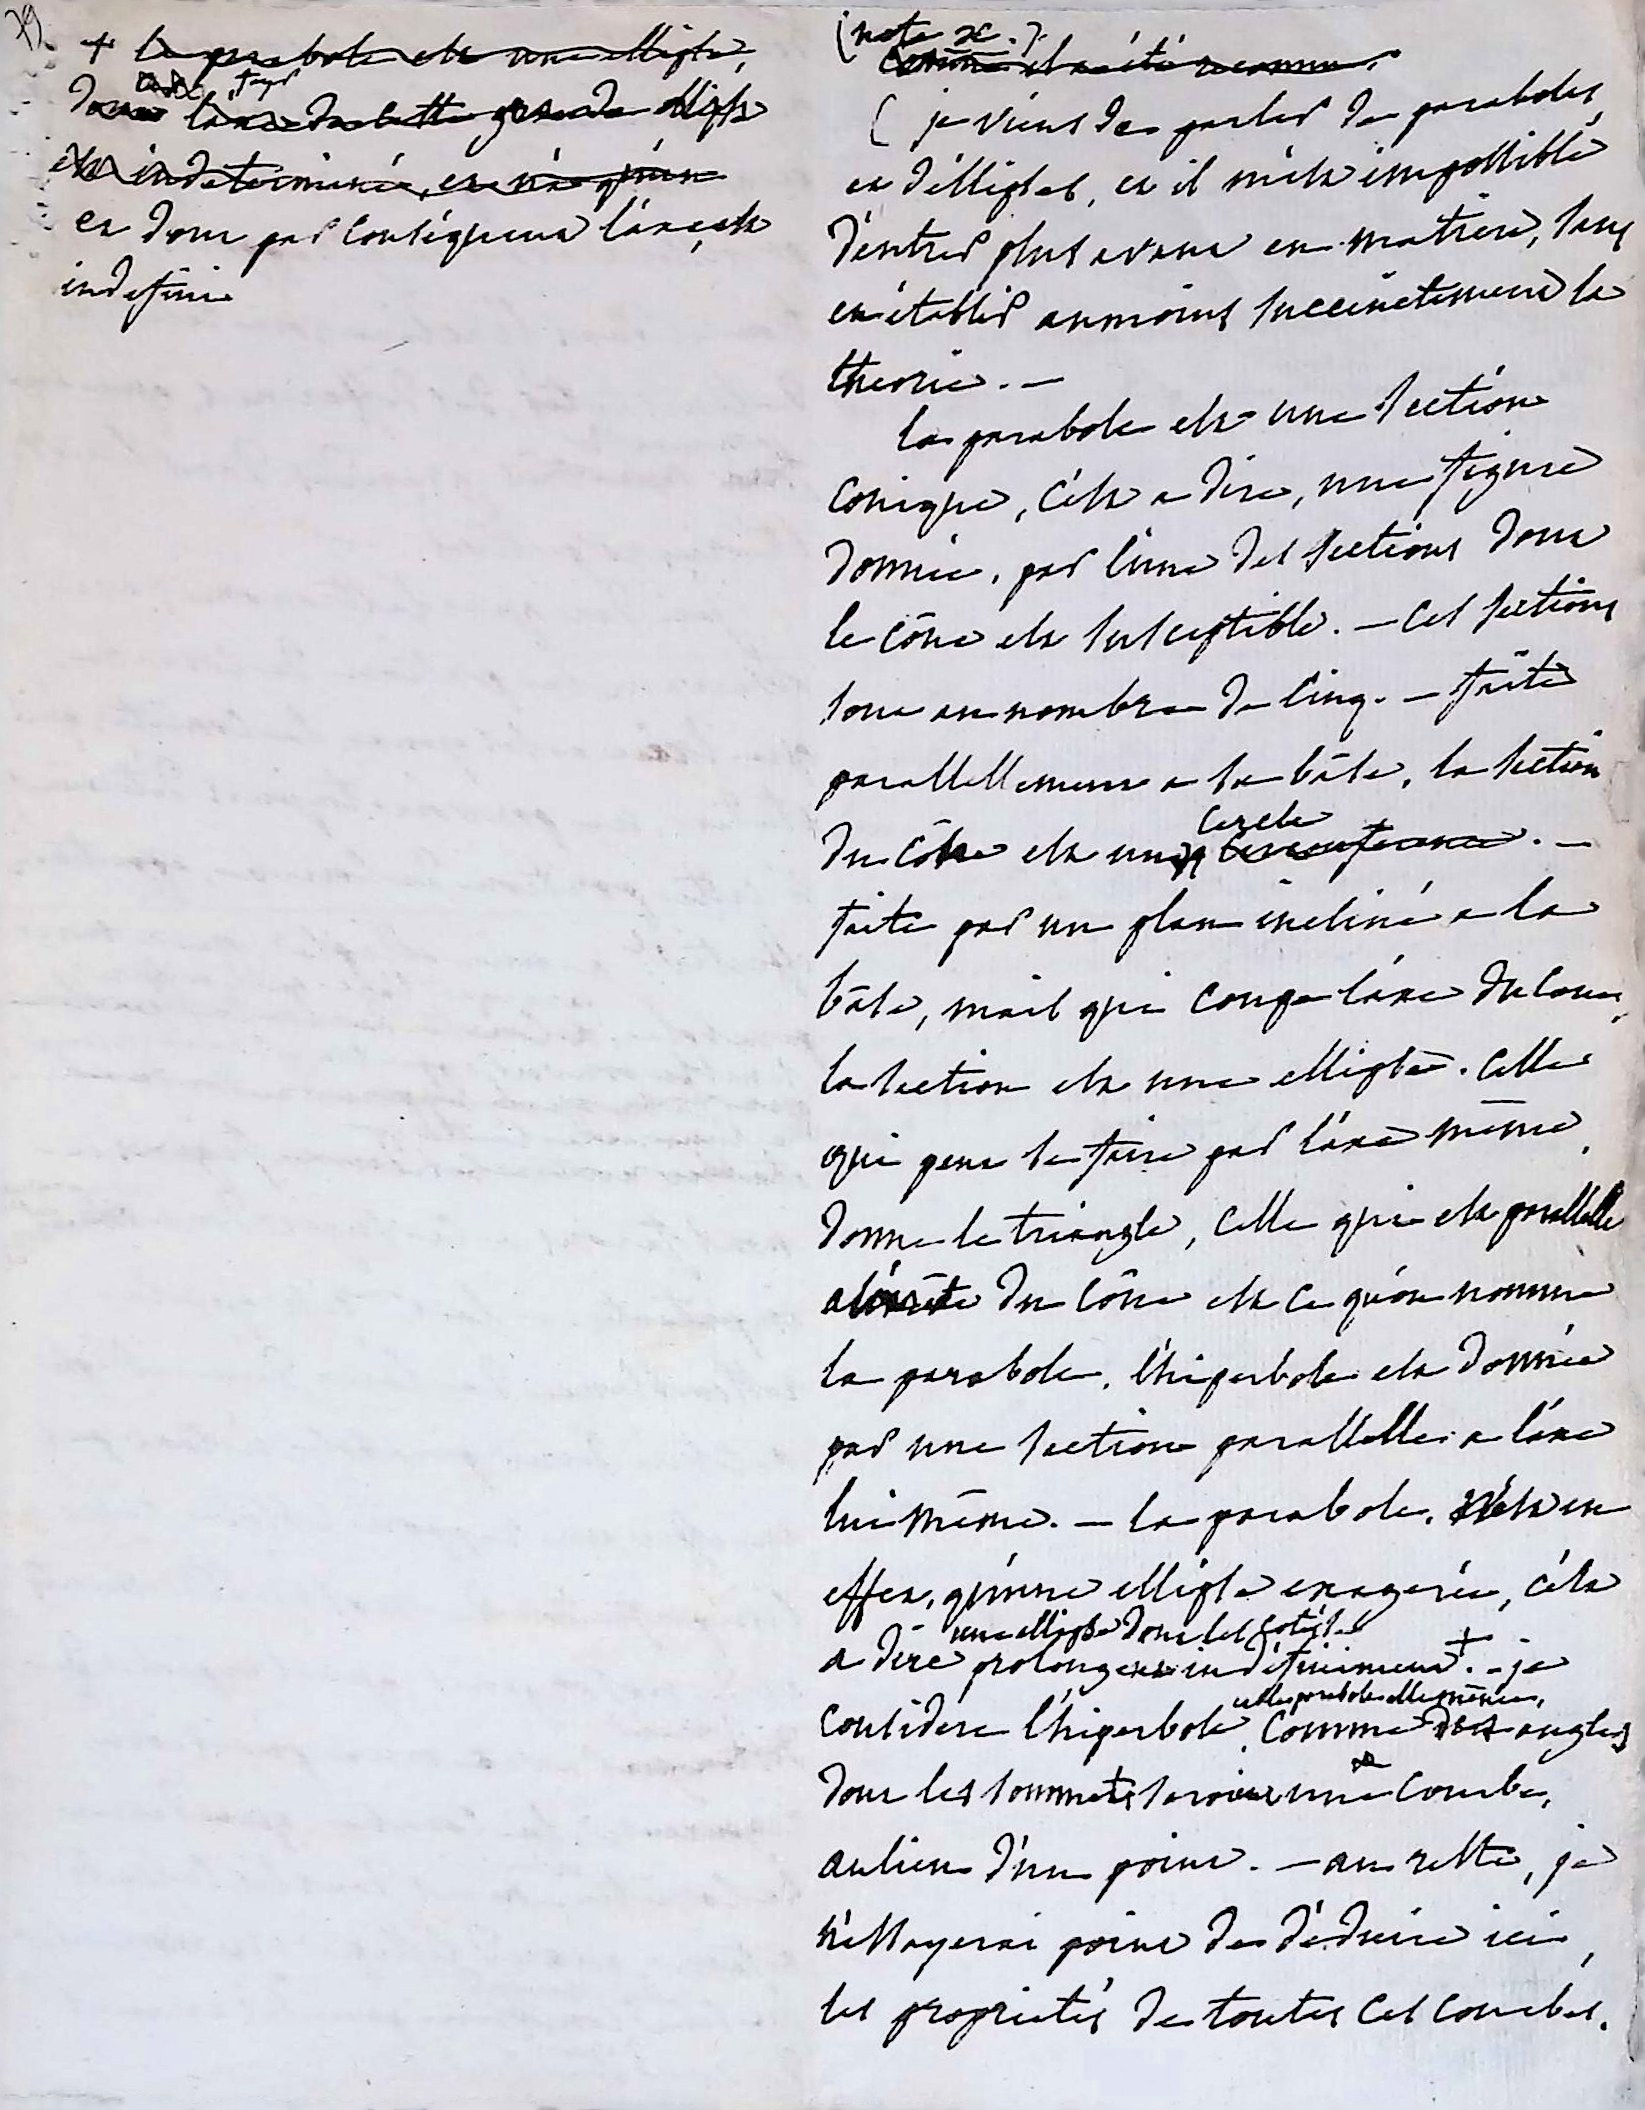 79.
+ la parabole est une ellipse,
donc l'axe de cette grande ellipse
est indeterminé, et n'a qu'un
et dont par conséquent l'axe est
indefini
(note x.)
comme il a été reconnu,
( je viens de parler de paraboles,
et d'éllipses, et il m'est impossible
d'entrer plus avant en matiere, sans
en établir aumoins succinctement la
theorie. —
la parabole est une séction
conique, c'ést a dire, une figure
donnée, par l'une des sections dont
le cône est susceptible. — Ces sections
sont au nombre de cinq. — faite
parallellement a sa bâse, la section
cercle
du cône est un circonference. —
faite par un plan incliné a la
bâse, mais qui coupe l'axe du cone,
la section est une ellipse. Celle
qui peut se faire par l'axe même,
donne le triangle, Celle qui est parallelle
a l'arête du Cône est ce qu'on nomme
la parabole. l'hiperbole est donnée
par une section parallelle a l'axe
lui même. — la parabole, n'ést en
effet, qu'une ellipse exagerée, c'ést
une ellipse dont les cotés se
a dire prolongent indéfiniment +. - je
et la parabole elle même,
considere l'hiperbole, Comme des angles
dont les sommets seroient une Courbe,
aulieu d'un point. — au reste, je
n'éssayerai point de déduire ici,
les proprietés de toutes Ces Courbes.